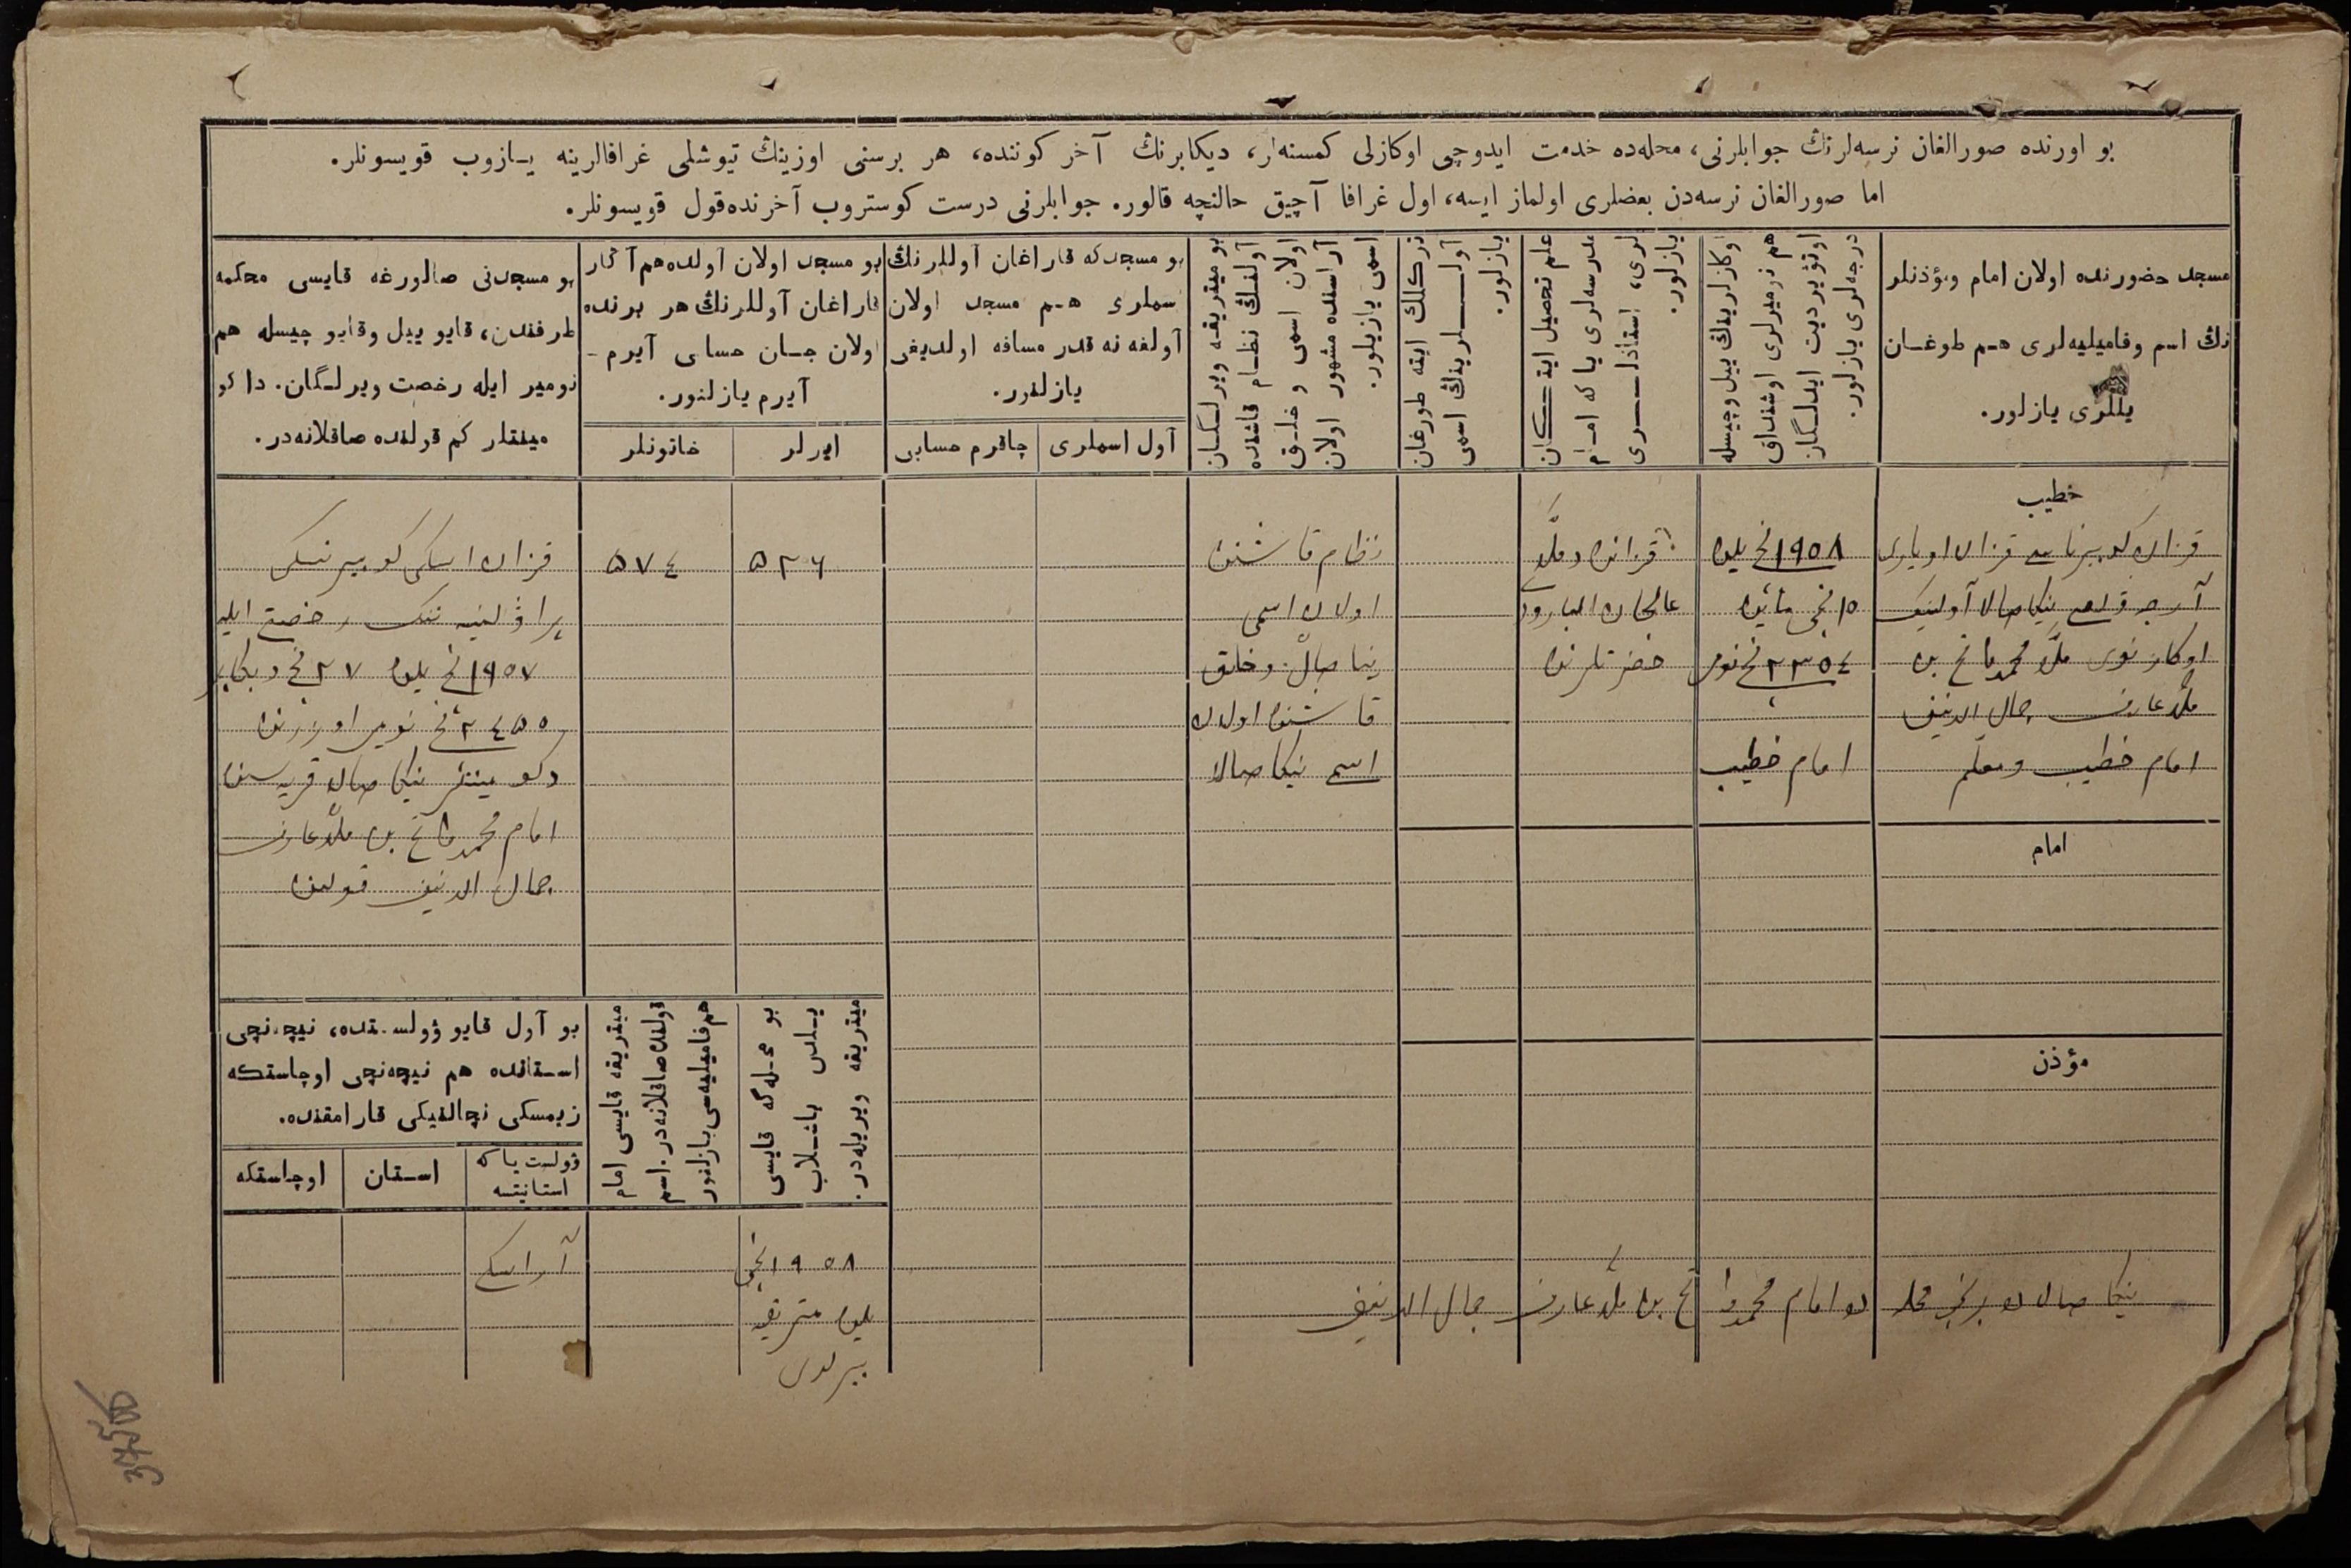 بو اورنده صورالغان نرسه‌لرنڭ جوابلرنی، محله‌ده خدمت ایدوچی اوکازلی کمسنه‌لر، دیکابرنڭ آخر کوننده، هر برسنی اوزینڭ تیوشلی غرافالرینه یـازوب قویسونلر.
اما صورالغان نرسه‌دن بعضلری اولماز ایسه، اول غرافا آچیق حالنچه قالور. جوابلرنی درست کوستروب آخرنده قول قویسونلر.
مسجد حضورنده اولان امام ومؤذنلر
نڭ اسم وفامیلیه‌لری هـم طوغـان
یللری یازلور.
اوکازلرینڭ ییل وچیسله
هم نومیرلری اوشنداق
اوتویردیت ایدلـگان
درجه‌لری یازلور.
علم تحصیل ایتـكان
مدرسه‌لری یا که امـام
لری، استاذلـری
یازلور.
نرکلك ایته طورغان
آولـلرینڭ اسمی
یازلور.
بو میتریقه ویرلـگـان
آولنڭ نظـام قاشنده
اولان اسمی و خلـق
آراسنده مشهور اولان
اسمی یازیلور.
بو مسجدکه قاراغان آوللرنڭ
اسملری هـم مسجد اولان
آولغه نه قدر مسافه اولدیغی
یازلنور.
آول اسملری
چاقرم حسابی
بو مسجد اولان آولده هم آڭار
قاراغان آوللرنڭ هر برنده
اولان جـان حسابی آیرم -
آیرم یازلنور.
ایرلر
خاتونلر
بو مسجدنی صالورغه قایسی محکمه
طرفندن، قایو ییل وقایو چیسله هم
نومیر ایله رخصت ویرلـگان. داکو
مینتلر کم قولنده صاقلانه‌در.
خطیب
آرچه قلعه ینکا صالا آولینیک
اوکازنوی ملّا محمد فاتح بن
ملّا عارف جمال الدینف
امام خطیب ومعلم
١٩٠٨ نچی یلده
١٥ نچی مائده
٢٣٥٤ نچی نومر
امام خطیب
قزانده دملّا
عالمجان البارودی
حضرتلرنده
نظام قاشنده
اولان اسمی
ینکا صالا. وخلق
قاشنده اولان
اسمی ینکا صالا
٥٢٦
٥٧٤
قزان اسکی کوبیرنسکی
پراڤلینیه ننک رخصتی ایله
١٩٠٧ نچی یلده ٢٧ نچی دیکابر
٢٤٥٥ نچی نومیر اوزرنده
دکومینتلر ینکا صالا قریه سنده
امام محمد فاتح بن ملّا عارف
جمال الدینف قولنده
امام
مؤذن
بو آول قایو ؤولسـتده، نیچه‌نچی
اسـتانده هم نیچه‌نچی اوچاستکه
زیمسکی نچالنیکی قارامقنده.
ؤولست یا که
استانیتسه
اسـتان
اوچاستکه
میتریقه قایسی امام
قولنده صاقلانه‌در. اسم
هم فامیلیه‌سی یازلنور
بو محـله‌گه قایسی
یـلدن باشـلاب
میتریقه ویریله‌در.
١٩٠٨ نچی
یلده متریقه
بیرلدی
ینکا صالا نڭ برنچی محله نڭ امام محمد فاتح بن ملّا عارف جمال الدینف